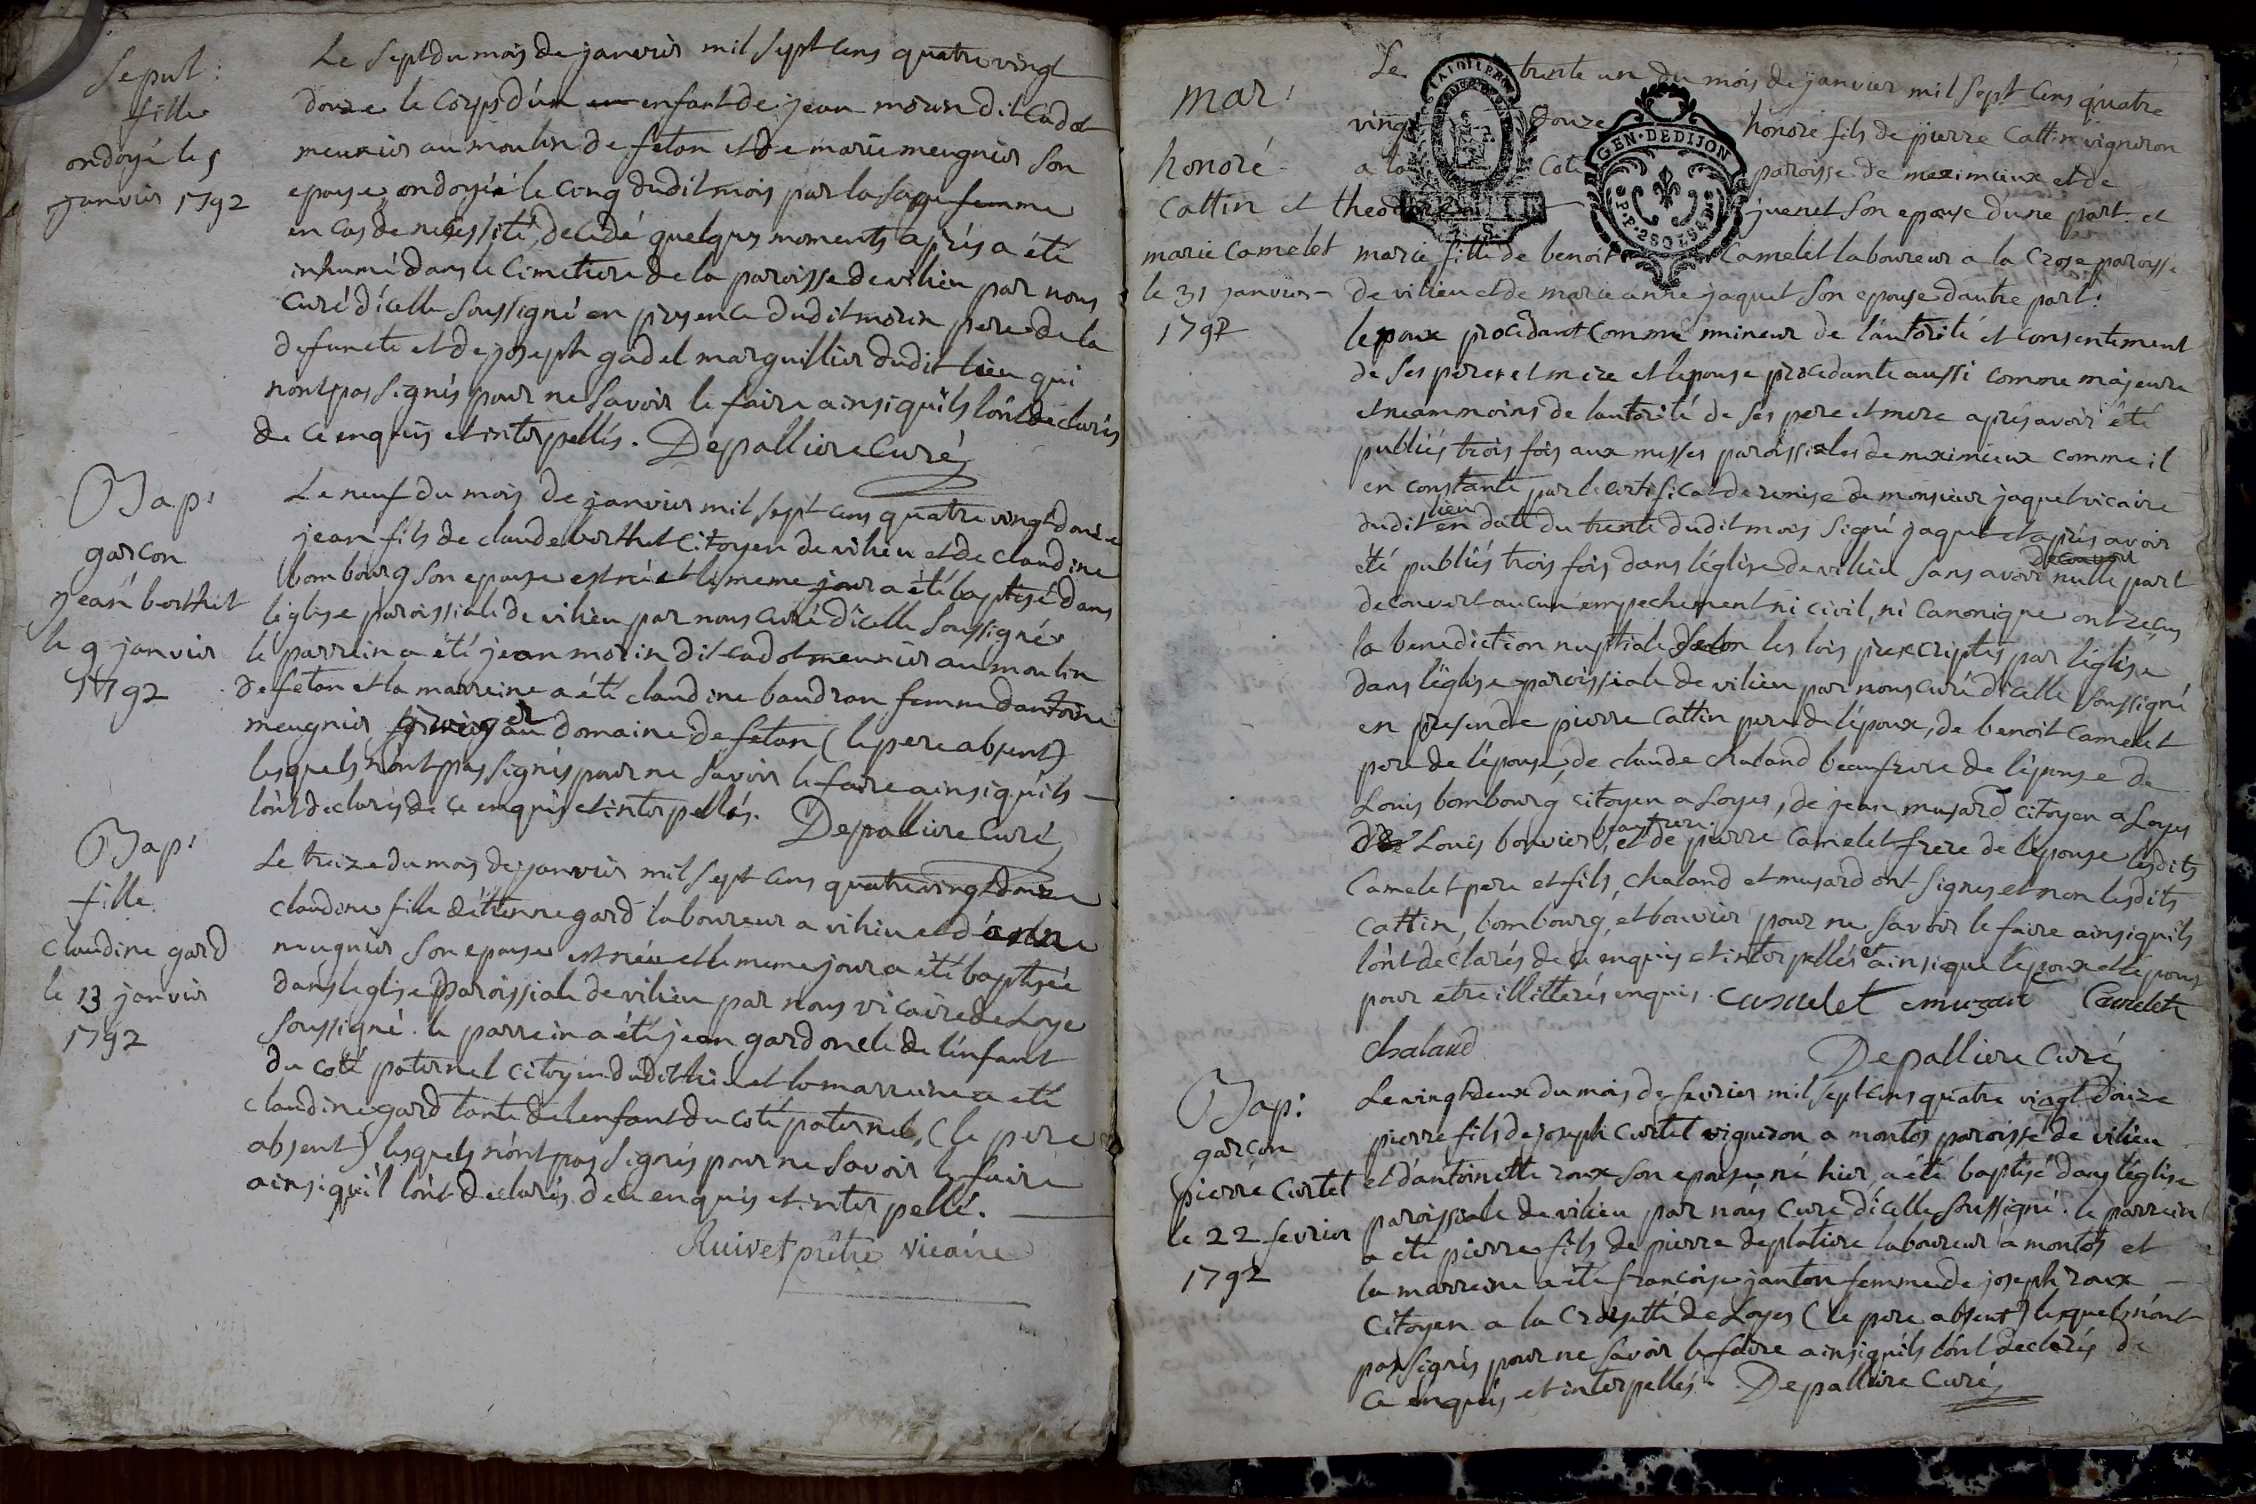 Sepul:
fille
ondoyé le 5
janvier 1792
Le sept du mois de janvier mil sept cens quatre vingt
douze le corps d'un enfant de jean morin dit Cadot
meunier au moulin de feton et de marie meugnier son
epouse, ondoyée le cinq dudit mois par la sage femme
en cas de necessité, decedé quelques moments aprés a été
inhumé dans le Cimetiere de la paroisse de vilieu par nous
Curé d'icelle soussigné en presence dudit morin pere de la
defuncte et de joseph gadel marguillier dudit lieu qui
nont pas signés pour ne savoir le faire ainsi quils l'ont declarés
de ce enquis et interpellés. Depalliere Curé
Bap:
garcon
jean berthet
le 9 janvier
1792
Le neuf du mois de janvier mil sept cens quatre vingt douze
jean fils de claude berthet Citoyen de vilieu et de claudine
bombourg son epouse est né et le meme jour a été baptisé dans
leglise paroissiale de vilieu par nous Curé d'icelle soussigné
le parrein a été jean morin dit cadot meunier au moulin
de feton et la marreine a été claudine baudran femme d'antoine
meugnier granger au domaine de feton (le pere absent)
lesquels n'ont pas signés pour ne savoir le faire ainsi quils
l'ont declarés de ce enquis et interpellés. Depalliere Curé
Bap:
fille
Claudine gard
le 13 janvier
1792
Le treize du mois de janvier mil sept cens quatre vingt douze
claudine fille d'étienne gard laboureur a vilieu et d'anne
meugnier son epouse est née et le meme jour a été baptisée
dans leglise paroissiale de vilieu par nous vicaire de Loye
soussigné. le parrein a été jean gard oncle de l'enfant
du coté paternel citoyen dudit lieu et la marreine a été
claudine gard tante de l'enfant du coté paternel, (le pere
absent) lesquels n'ont pas signés pour ne savoir le faire
ainsi qu'il l'ont declarés de ce enquis et interpellé.
Ruivet prêtre vicaire
mar:
honoré
Cattin et
marie Camelet
le 31 janvier
1792
GEN. DEDIJON
Le trente un du mois de janvier mil sept cens quatre
vingt douze honoré fils de pierre Cattin vigneron
a la Cote paroisse de meximieux et de
juenet son epouse d'une part et
marie fille de benoit Camelet laboureur a la Croze paroisse
de vilieu et de marie anne jaquet son epouse dautre part:
lepoux procedant comme mineur de l'autorité et consentement
de ses pere et mere et lepouse procedante aussi comme majeure
et neammoins de lautorité de ses pere et mere aprés avoir été
publiés trois fois aux messes paroissiales de meximieux comme il
en constante par le certificat de remise de monsieur jaquet vicaire
dudit lieu en date du trente dudit mois signé jaquet et aprés avoir
été publiés trois fois dans l'église de vilieu sans avoir nulle part
decouvert aucun empechement ni civil, ni canonique ont reçus
la benediction nuptiale selon les lois prescriptes par l'église
dans l'église paroissiale de vilieu par nous curé d'icelle soussigné
en presence de pierre Cattin pere de l'époux, de benoit Camelet
pere de l'épouse, de claude chaland beaufrere de l'épouse de
Louis bombourg citoyen a Loyes, de jean musard citoyen a Loyes
de Louis bouvier, beaufrere et de pierre Camelet frere de l'épouse lesdits
Camelet pere et fils, chaland et musard ont signés et non lesdits
Cattin, bombourg, et bouvier pour ne savoir le faire ainsi quils
l'ont declarés de ce enquis et interpellés et ainsi que l'époux et l'épouse
pour etre illitterés enquis. Camelet musard Camelet
Chaland
Depalliere Curé
Bap:
garcon
pierre Curtet
le 22 fevrier
1792
Le vingt deux du mois de fevrier mil sept cens quatre vingt douze
pierre fils de joseph Curtet vigneron a montos paroisse de vilieu
et d'antoinette roux son epouse né hier, a été baptisé dans l'église
paroissiale de vilieu par nous Curé d'icelle soussigné. le parrein
a été pierre fils de pierre deplatiere laboureur a montos et
la marreine a été françoise janton femme de joseph roux
Citoyen a la Crozette de Loyes (le pere absent) lesquels n'ont
pas signés pour ne savoir le faire ainsi quils l'ont declarés de
ce enquis et interpellés. Depalliere Curé